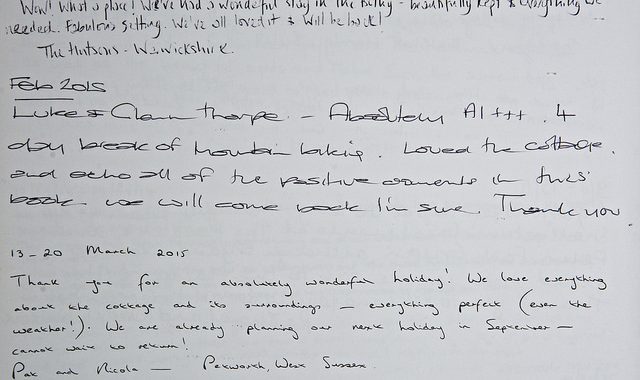 Wow! What a place! We've had a wonderful stay in the - beautifully kept & everything we
needed. Fabulous setting. We've all loved it & will be back!
The Hutsons - Warwickshire.
Feb 2015
Luke & Thorpe - Absolutely A1+++. 4
day break of mountain biking. Loved the cottage.
and echo all of the positive comments in this
book. we will come back I'm sure. Thank you.
13-20 March 2015
Thank you for an absolutely wonderful holiday! We love everything
about the cottage and its surroundings - everything perfect (even the
weather!). We are already planning our next holiday in September -
cannot wait to return!
Pat and Nicola - Petworth, West Sussex.